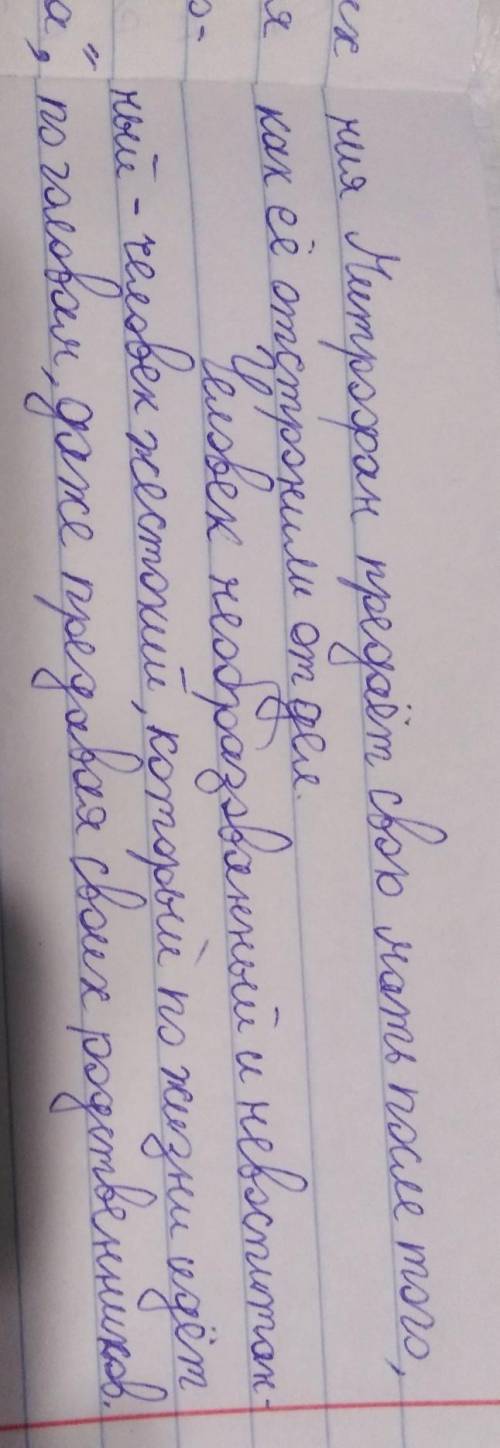 ния Митрофан предаёт свою мать после того,
как её отстронили от дел.
Человек необразованный и невоспитан-
ный - человек жестокий, который по жизни идёт
по головам, даже предавая своих родственников.